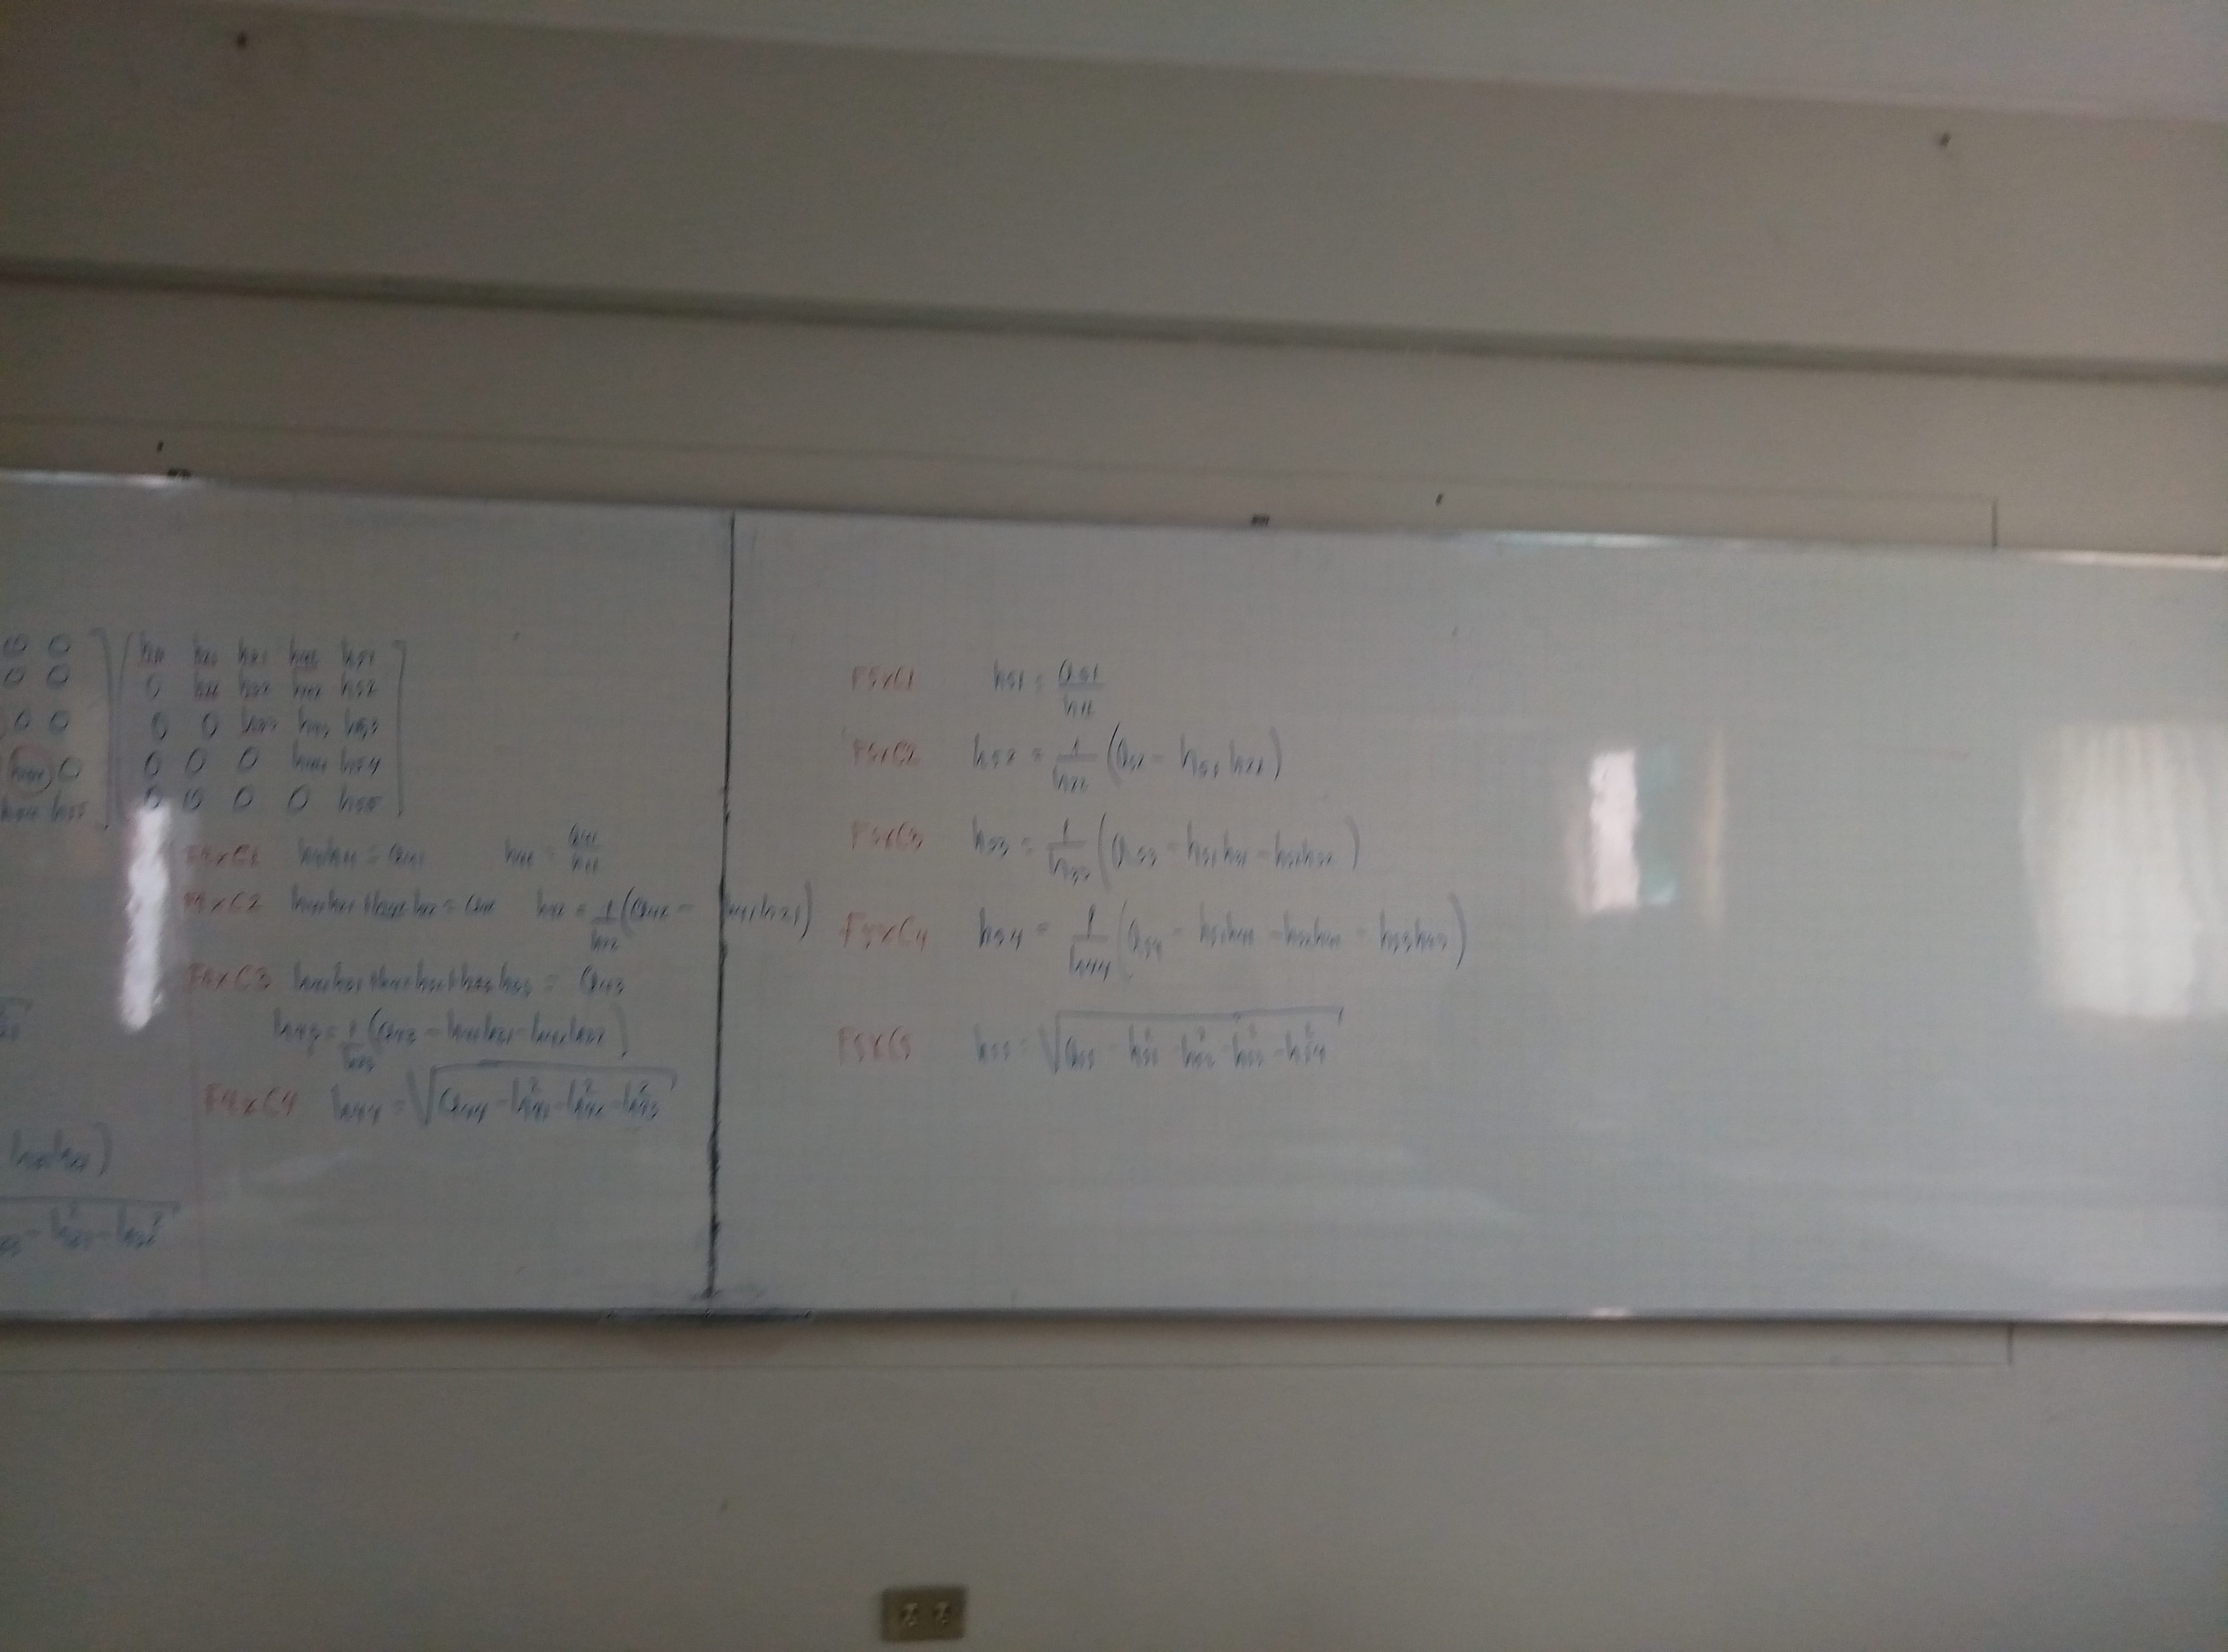 0 0
0 0
0 0
h44 0
h54 h55
h11 h21 h31 h41 h51
0 h22 h32 h42 h52
0 0 h33 h43 h53
0 0 0 h44 h54
0 0 0 0 h55
F4xC1 h41h11 = a41 h41 = a41/h11
F4xC2 h41h21 + h42h22 = a42 h42 = 1/h22 (a42 - h41h21)
F4xC3 h41h31 + h42h32 + h43h33 = a43
h43 = 1/h33 (a43 - h41h31 - h42h32)
F4xC4 h44 = √(a44 - h41² - h42² - h43²)
F5xC1 h51 = a51/h11
F5xC2 h52 = 1/h22 (a52 - h51h21)
F5xC3 h53 = 1/h33 (a53 - h51h31 - h52h32)
F5xC4 h54 = 1/h44 (a54 - h51h41 - h52h42 - h53h43)
F5xC5 h55 = √(a55 - h51² - h52² - h53² - h54²)